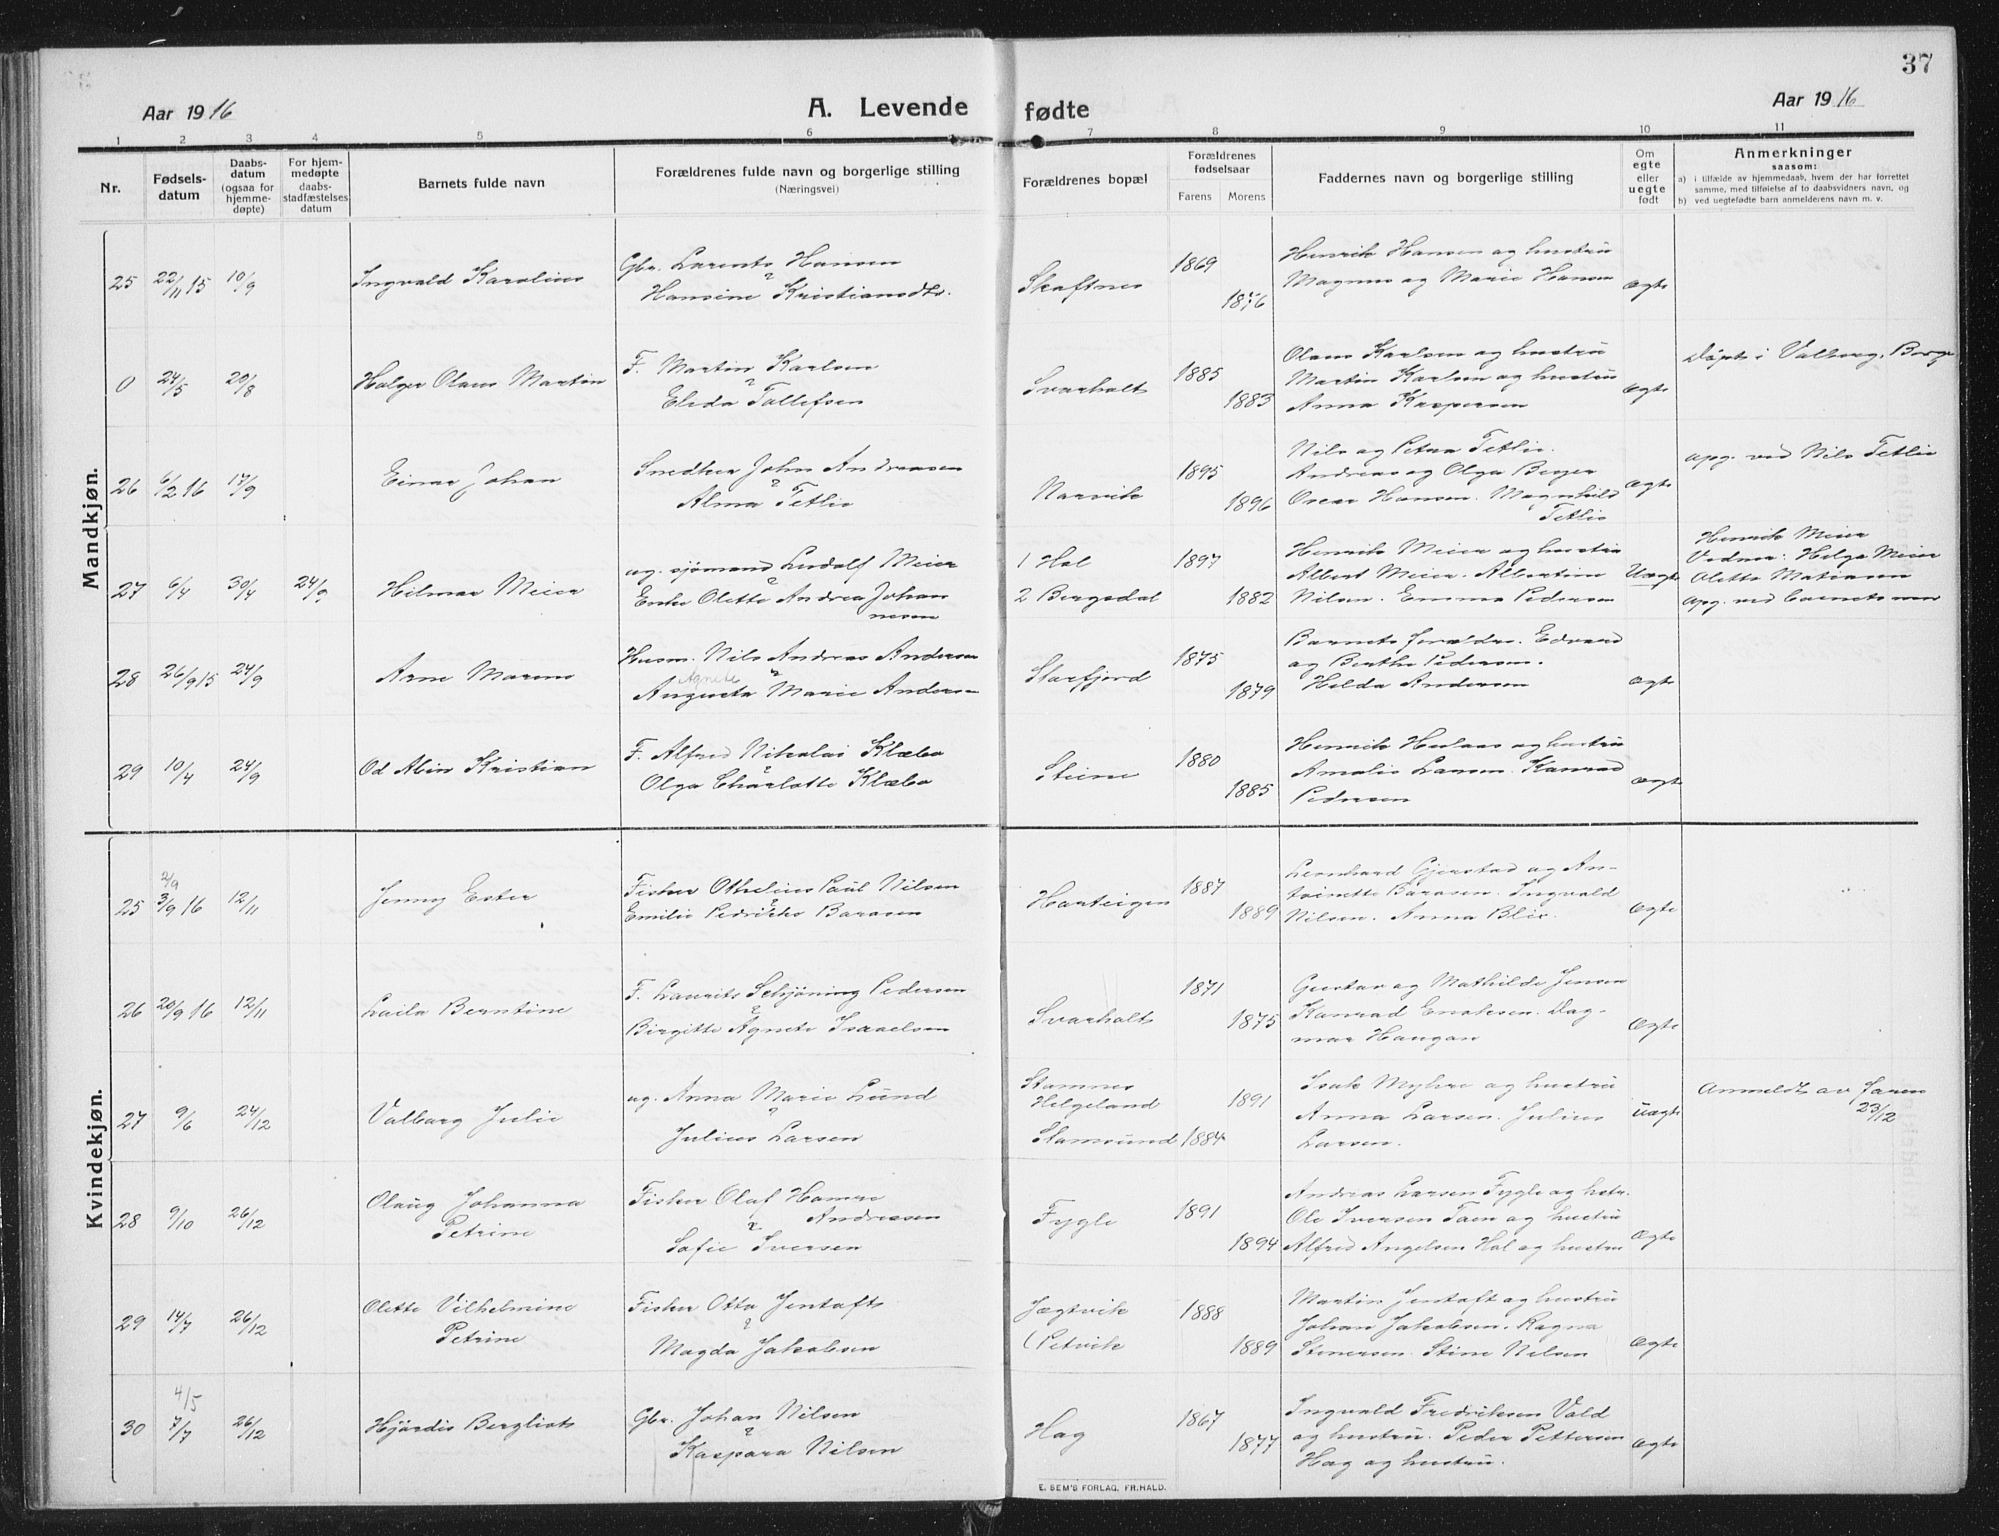 37
Aar 1916 A. Levende fødte Aar 1916
1 2 3 4 5 6 7 8 9 10 11
Nr.
Fødsels-
datum
Daabs-
datum
(ogsaa for
hjemme-
døpte)
For hjem-
medøpte
daabs-
stadfæstelses
datum
Barnets fulde navn
Forældrenes fulde navn og borgerlige stilling
(Næringsvei)
Forældrenes bopæl
Forældrenes
fødselsaar
Farens Morens
Faddernes navn og borgerlige stilling
Om
egte
eller
uegte
født
Anmerkninger
saasom:
a) i tilfælde av hjemmedaab, hvem der har forrettet
samme, med tilføielse av to daabsvidners navn, og
b) ved uegtefødte barn anmelderens navn m. v.
Mandkjøn.
25 22/11 15 10/9
Ingvald Karolius
Gbr. Larents Hansen
&
Hansine Kristiansdtr.
Skaftnes
1869
1876
Henrik Hansen og hustru
Magnus og Marie Hansen
Ægte
0 24/5 20/8
Holger Olaus Martin
F. Martin Karlsen
&
Elida Tollefsen
Svarholt
1885
1883
Olaus Karlsen og hustru
Martin Karlsen og hustru
Anna Kaspersen
Ægte
Döpt i Valberg, Borge
26 6/2 16 17/9
Einar Johan
Snedker John Andreasen
&
Alma Tetlie
Narvik
1895
1896
Nils og Petra Tetlie.
Andreas og Olga Berger
Oscar Hansen. Magnhild
Tetlie
Ægte
opg. ved Nils Tetlie
27 6/4 30/4 24/9
Hilmar Meier
ug. sjömand Ludolf Meier
&
Enke Olette Andrea Johan
nesen
1 Hol
2 Bergsdal
1897
1882
Henrik Meier og hustru
Albert Meier. Albertine
Nilsen. Emma Pedersen
Uægte
Henrik Meier
Vidner: Helga Meier
Olette Matiasen
opg. ved barnets mor
28 26/9 15 24/9
Arne Marino
Husm. Nils Andreas Andersen
Agnete &
Augusta Marie Andersen
Storfjord
1875
1879
Barnets forældre. Edvard
og Berthe Pedersen.
Hilda Andersen
Ægte
29 10/4 24/9
Od Abin Kristian
F. Alfred Nikolai Klæbo
&
Olga Charlotte Klæbo
Steine
1880
1885
Henrik Hulaas og hustru
Amalie Larsen. Konrad
Pedersen
Ægte
Kvindekjøn.
2/9
25 3/9 16 12/11
Jenny Ester
Fisker Othelius Paul Nilsen
&
Emilie Pedrikke Barasen
Harteigen
1887
1889
Leonhard Gjerstad og An-
toinette Barasen. Ingvald
Nilsen. Anna Blix.
Ægte
26 20/9 16 12/11
Laila Berntine
F. Laurits Schjöning Pedersen
&
Birgitte Agnete Isaaelsen
Svarholt
1871
1875
Gustav og Mathilde Jensen
Konrad Enoksen. Dag-
mar Haugan
Ægte
27 9/6 24/12
Valborg Julie
ug. Anna Marie Lund
&
Julius Larsen
Stamnes
Helgeland
Stamsund
1891
1884
Isak Myhre og hustru
Anna Larsen. Julius
Larsen.
uægte
Anmeldt av faren
23/12
28 9/10 26/12
Olaug Johanna
Petrine
Fisker Olaf Hamre
Andreasen
&
Sofie Iversen
Fygle
1891
1894
Andreas Larsen Fygle og hstr.
Ole Iversen Taen og hustru
Alfred Angelsen Hol og hustru
Ægte
29 14/7 26/12
Olette Vilhelmine
Petrine
Fisker Otto Jentoft
&
Magda Jakobsen
Jægtvik
(Petvik
1888
1889
Martin Jentoft og hustru
Johan Jakobsen. Ragna
Stenersen. Stine Nilsen
Ægte
4/5
30 7/7 26/12
Hjördis Bergliot
Gbr. Johan Nilsen
&
Kaspara Nilsen
Hag
1867
1877
Ingvald Fredriksen Vold
og hustru. Peder Pettersen
Hag og hustru.
Ægte
E. SEM'S FORLAG, FR.HALD.